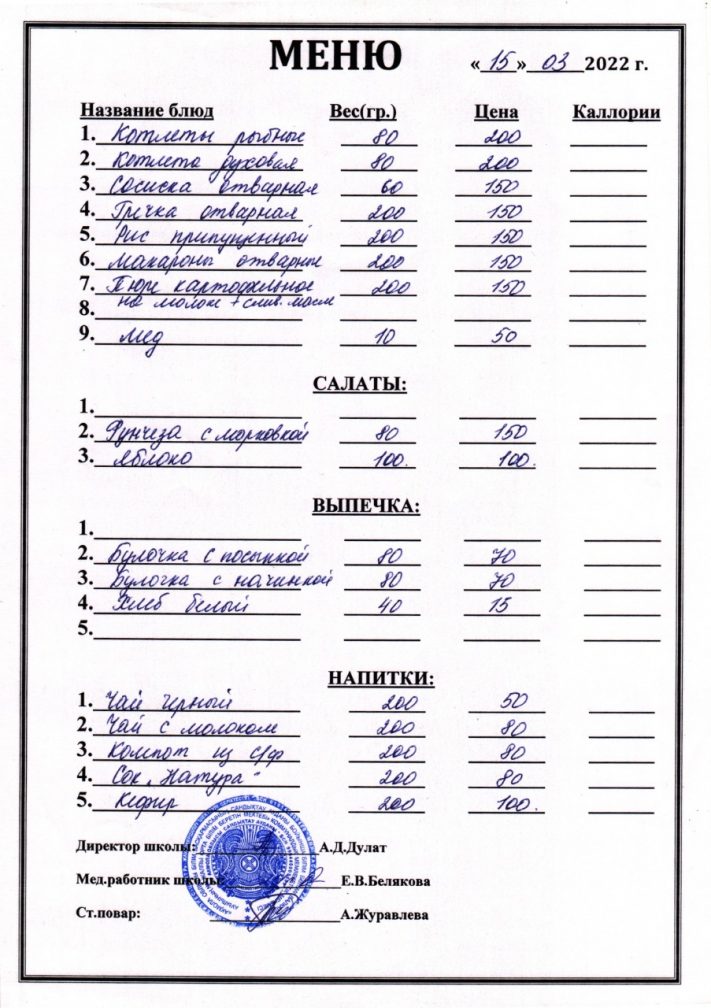 МЕНЮ «15» 03 2022 г.
Название блюд Вес(гр.) Цена Каллории
1. Котлеты рыбные 80 200
2. Котлета духовая 80 200
3. Сосиска отварная 60 150
4. Гречка отварная 200 150
5. Рис припущенный 200 150
6. Макароны отварные 200 150
7. Пюре картофельное 200 150
на молоке + слив. масл
8.
9. Мед 10 50
САЛАТЫ:
1.
2. Фунчеза с морковкой 80 150
3. Яблоко 100. 100.
ВЫПЕЧКА:
1.
2. Булочка с посыпкой 80 70
3. Булочка с начинкой 80 70
4. Хлеб белый 40 15
5.
НАПИТКИ:
1. Чай черный 200 50
2. Чай с молоком 200 80
3. Компот из с/ф 200 80
4. Сок „Натура" 200 80
5. Кефир 200 100.
Директор школы: А.Д.Дулат
Мед.работник школы: Е.В.Белякова
Ст.повар: А.Журавлева